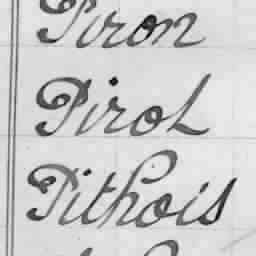 Piron
Pirot
Pithois